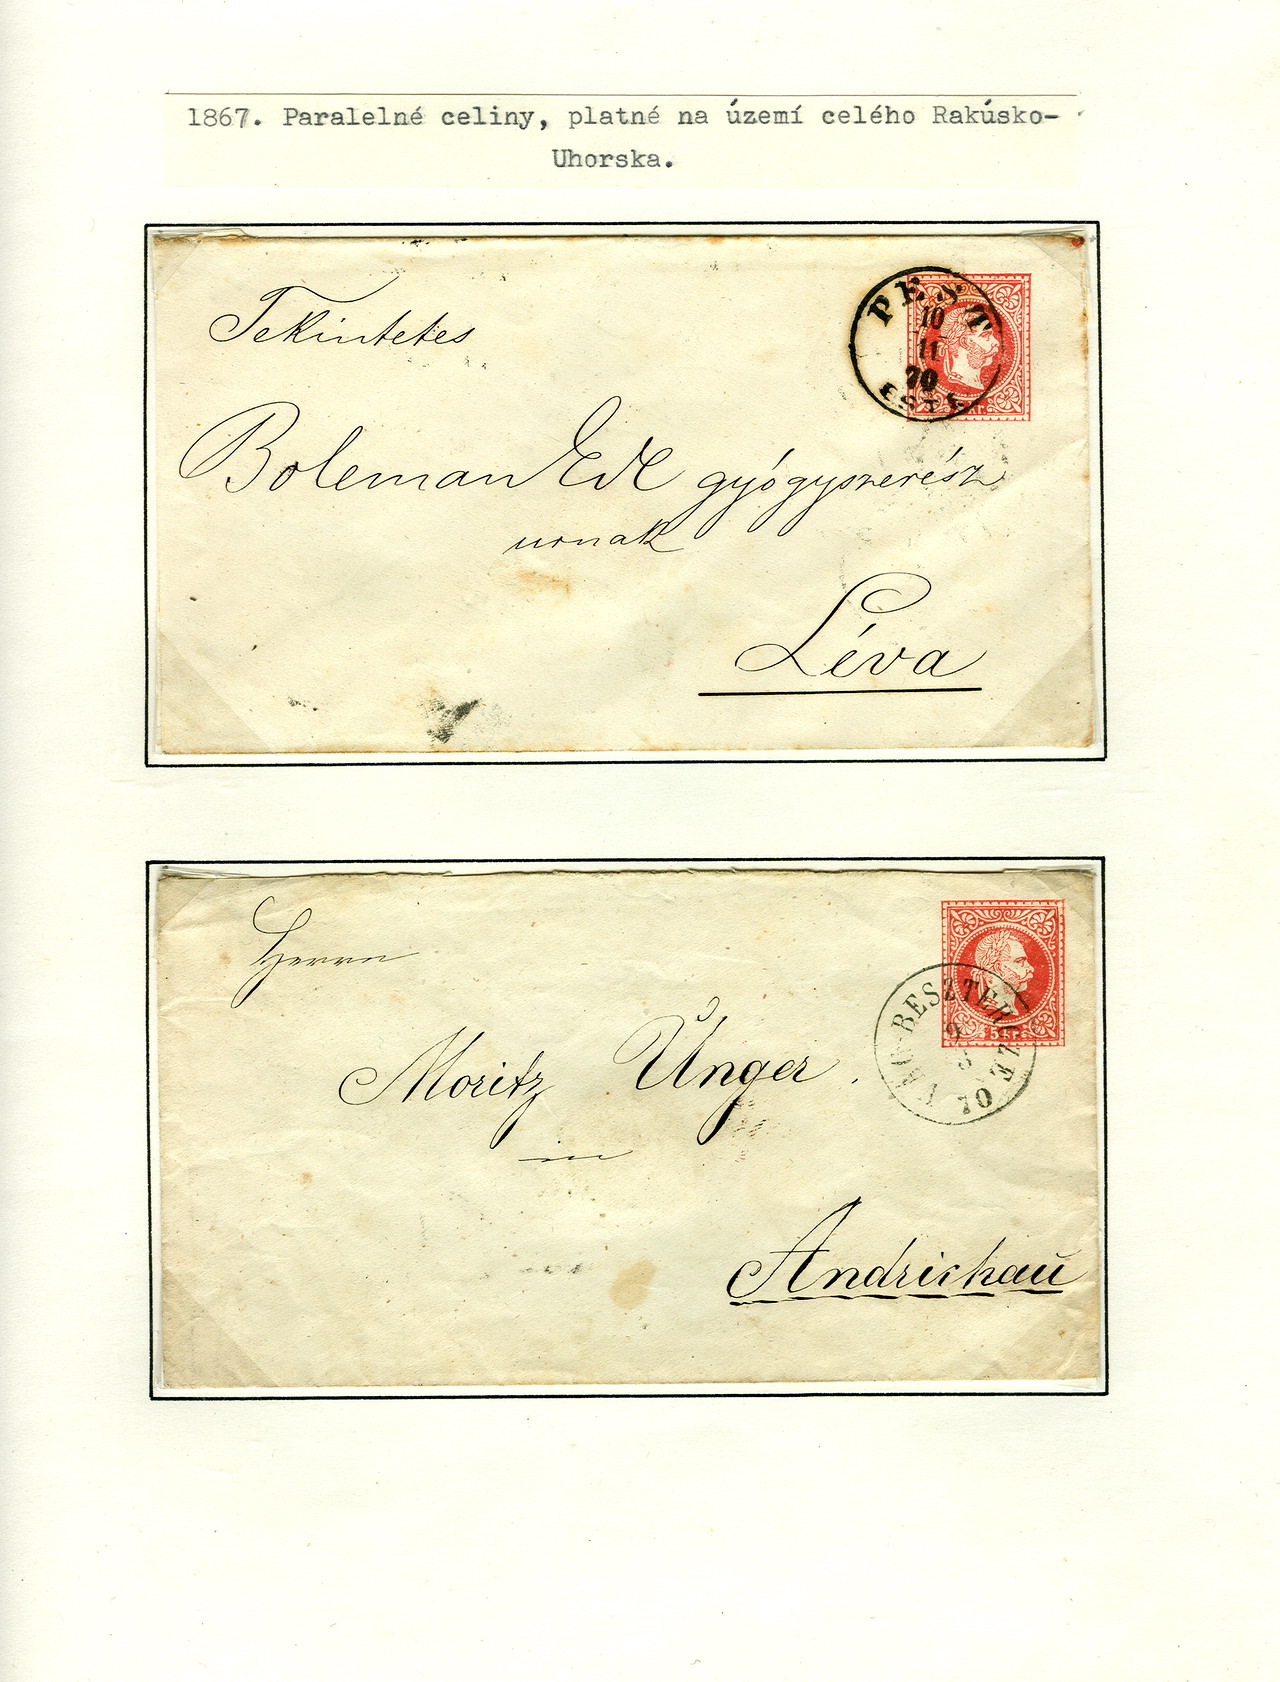 1867. Paralelné celiny, platné na území celého Rakúsko-
Uhorska.
PEST
10
11
70
ESTE
Kr.
Tekintetes
Boleman Ede gyógyszerész
urnak
Léva
Herrn
Moritz Unger.
in
Andrichau
BESZTERCZE
9
70
5 Kr.